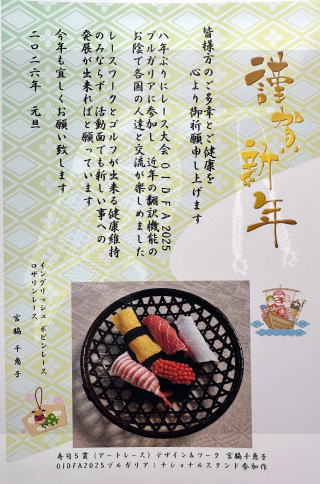 謹賀新年
皆様方のご多幸とご健康を
心より御祈願申し上げます
八年ぶりにレース大会OIDFA2025
ブルガリアに参加し 近年の翻訳機能の
お陰で各国の人達と交流が楽しめました
レースワークとゴルフが出来る健康維持
のみならず 活動面でも新しい事への
発展が出来ればと願っています
今年も宜しくお願い致します
二〇二六年 元旦
イングリッシュ ボビンレース
ロザリンレース
宮脇 千惠子
寿司5貫(アートレース)デザイン&ワーク 宮脇千恵子
OIDFA2025ブルガリア:ナショナルスタンド参加作